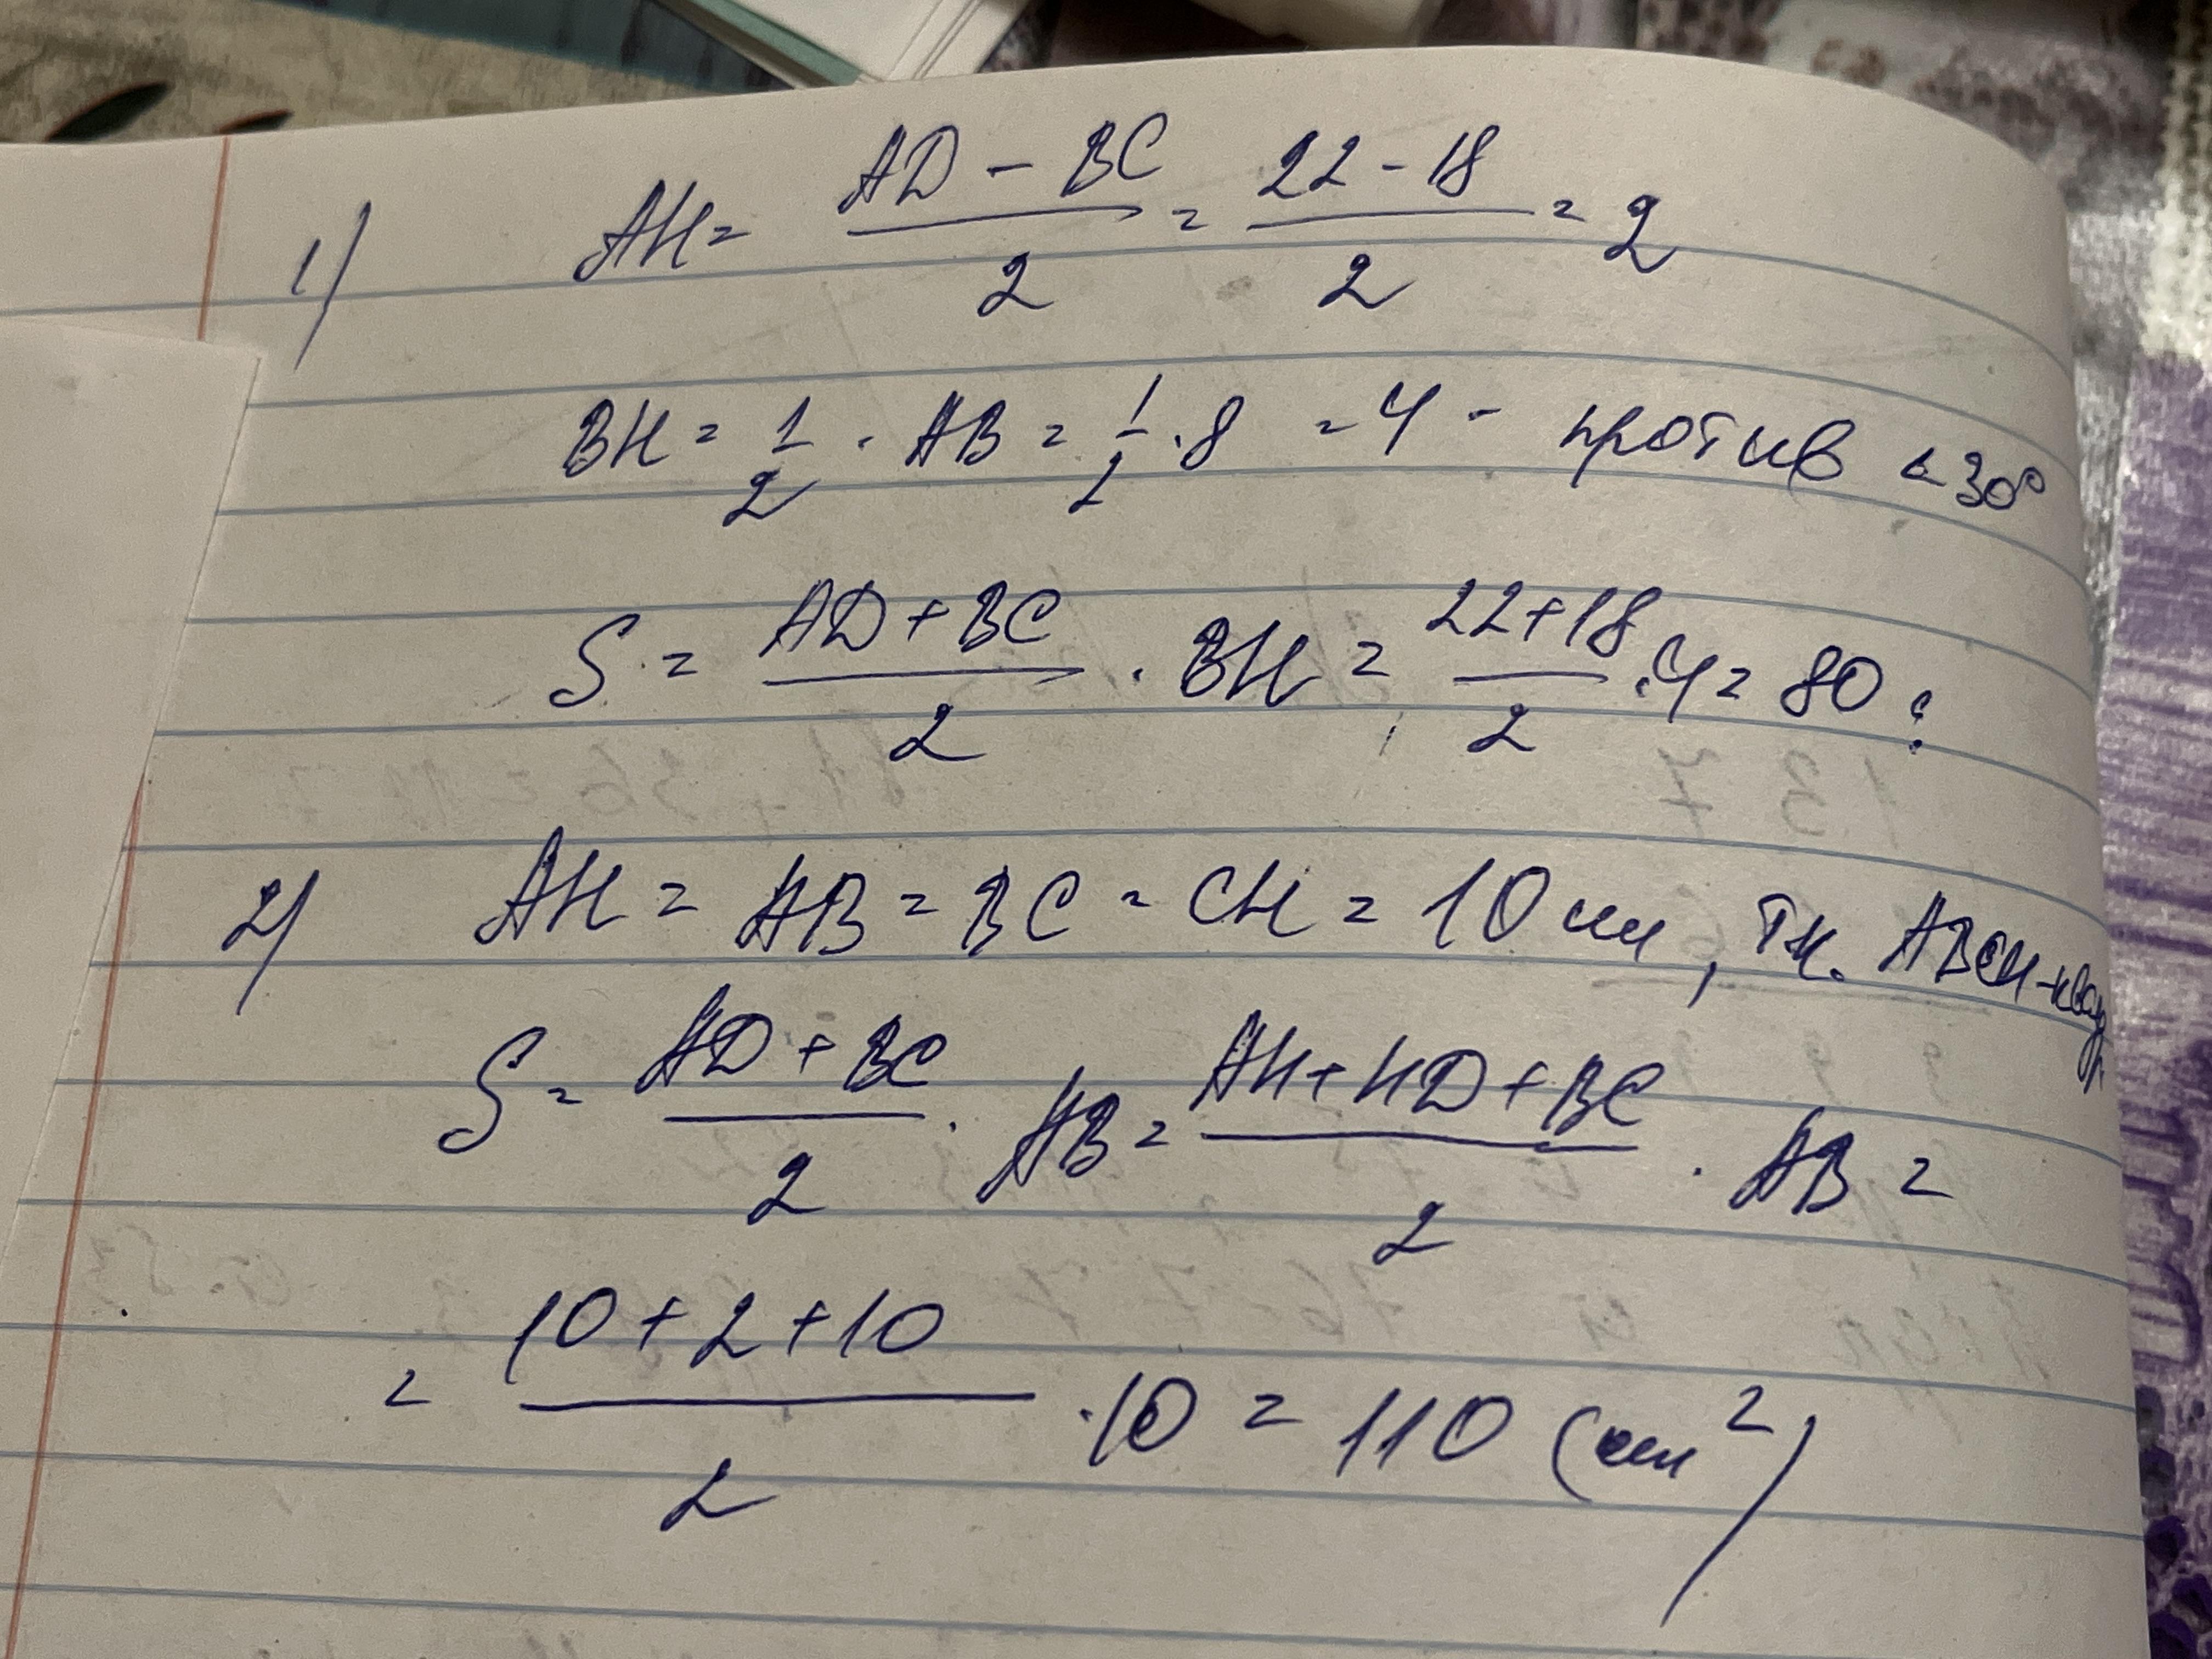 1) AH = (AD - BC)/2 = (22 - 18)/2 = 2
BH = 1/2 · AB = 1/2 · 8 = 4 - против ∠30°
S = (AD + BC)/2 · BH = (22+18)/2 · 4 = 80;
2) AH = AB = BC = CH = 10 см, тк. ABCH - квадр
S = (AD + BC)/2 · AB = (AH + HD + BC)/2 · AB =
= (10 + 2 + 10)/2 · 10 = 110 (см²)